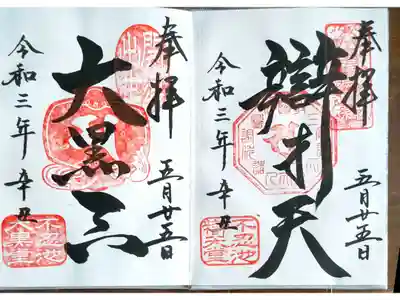 奉拝
五月廿五日
辯才天
令和三年 辛丑
不忍池
奉拝
五月廿五日
大黒天
令和三年 辛丑
不忍池
大黒堂